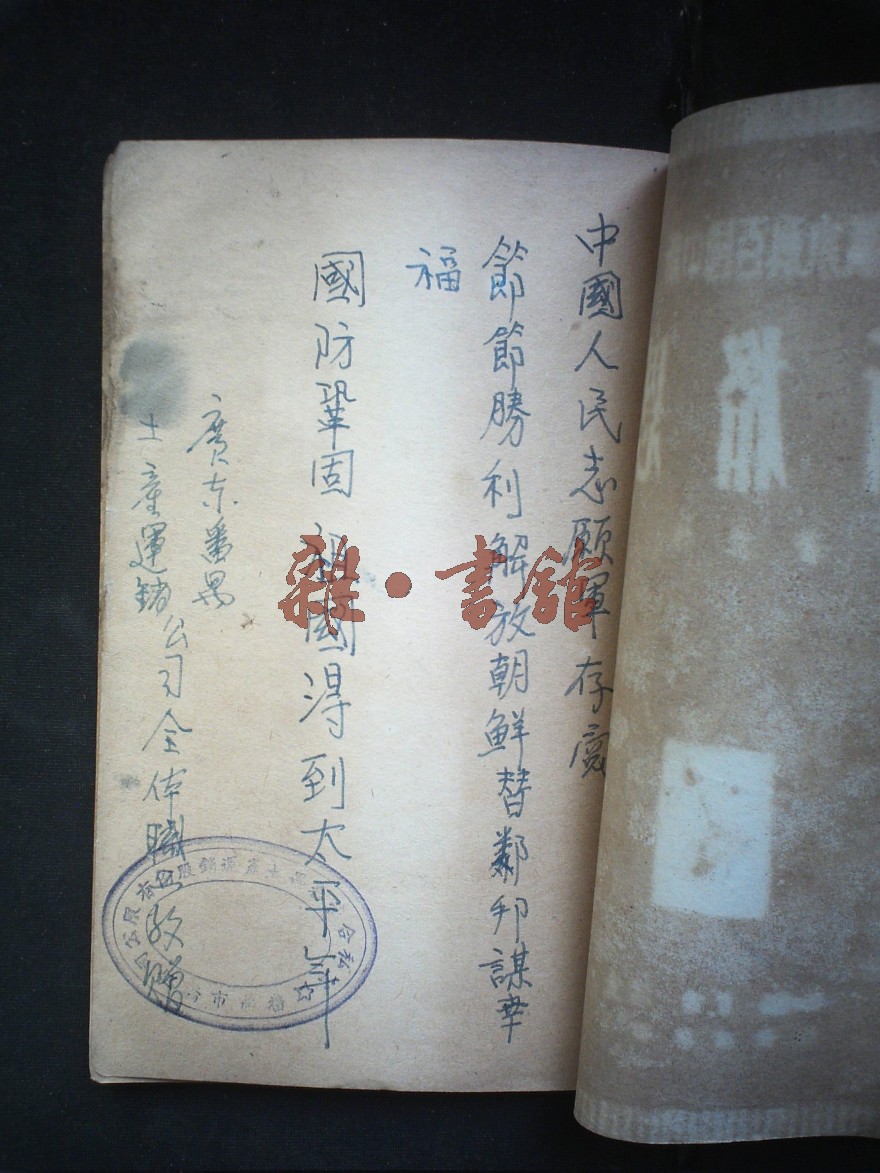 中國人民志願軍存閱
節節勝利解放朝鮮替鄰邦謀幸
福
國防鞏固祖國得到太平年
廣东番禺
土產運銷公司全体職工敬贈
雜·書館